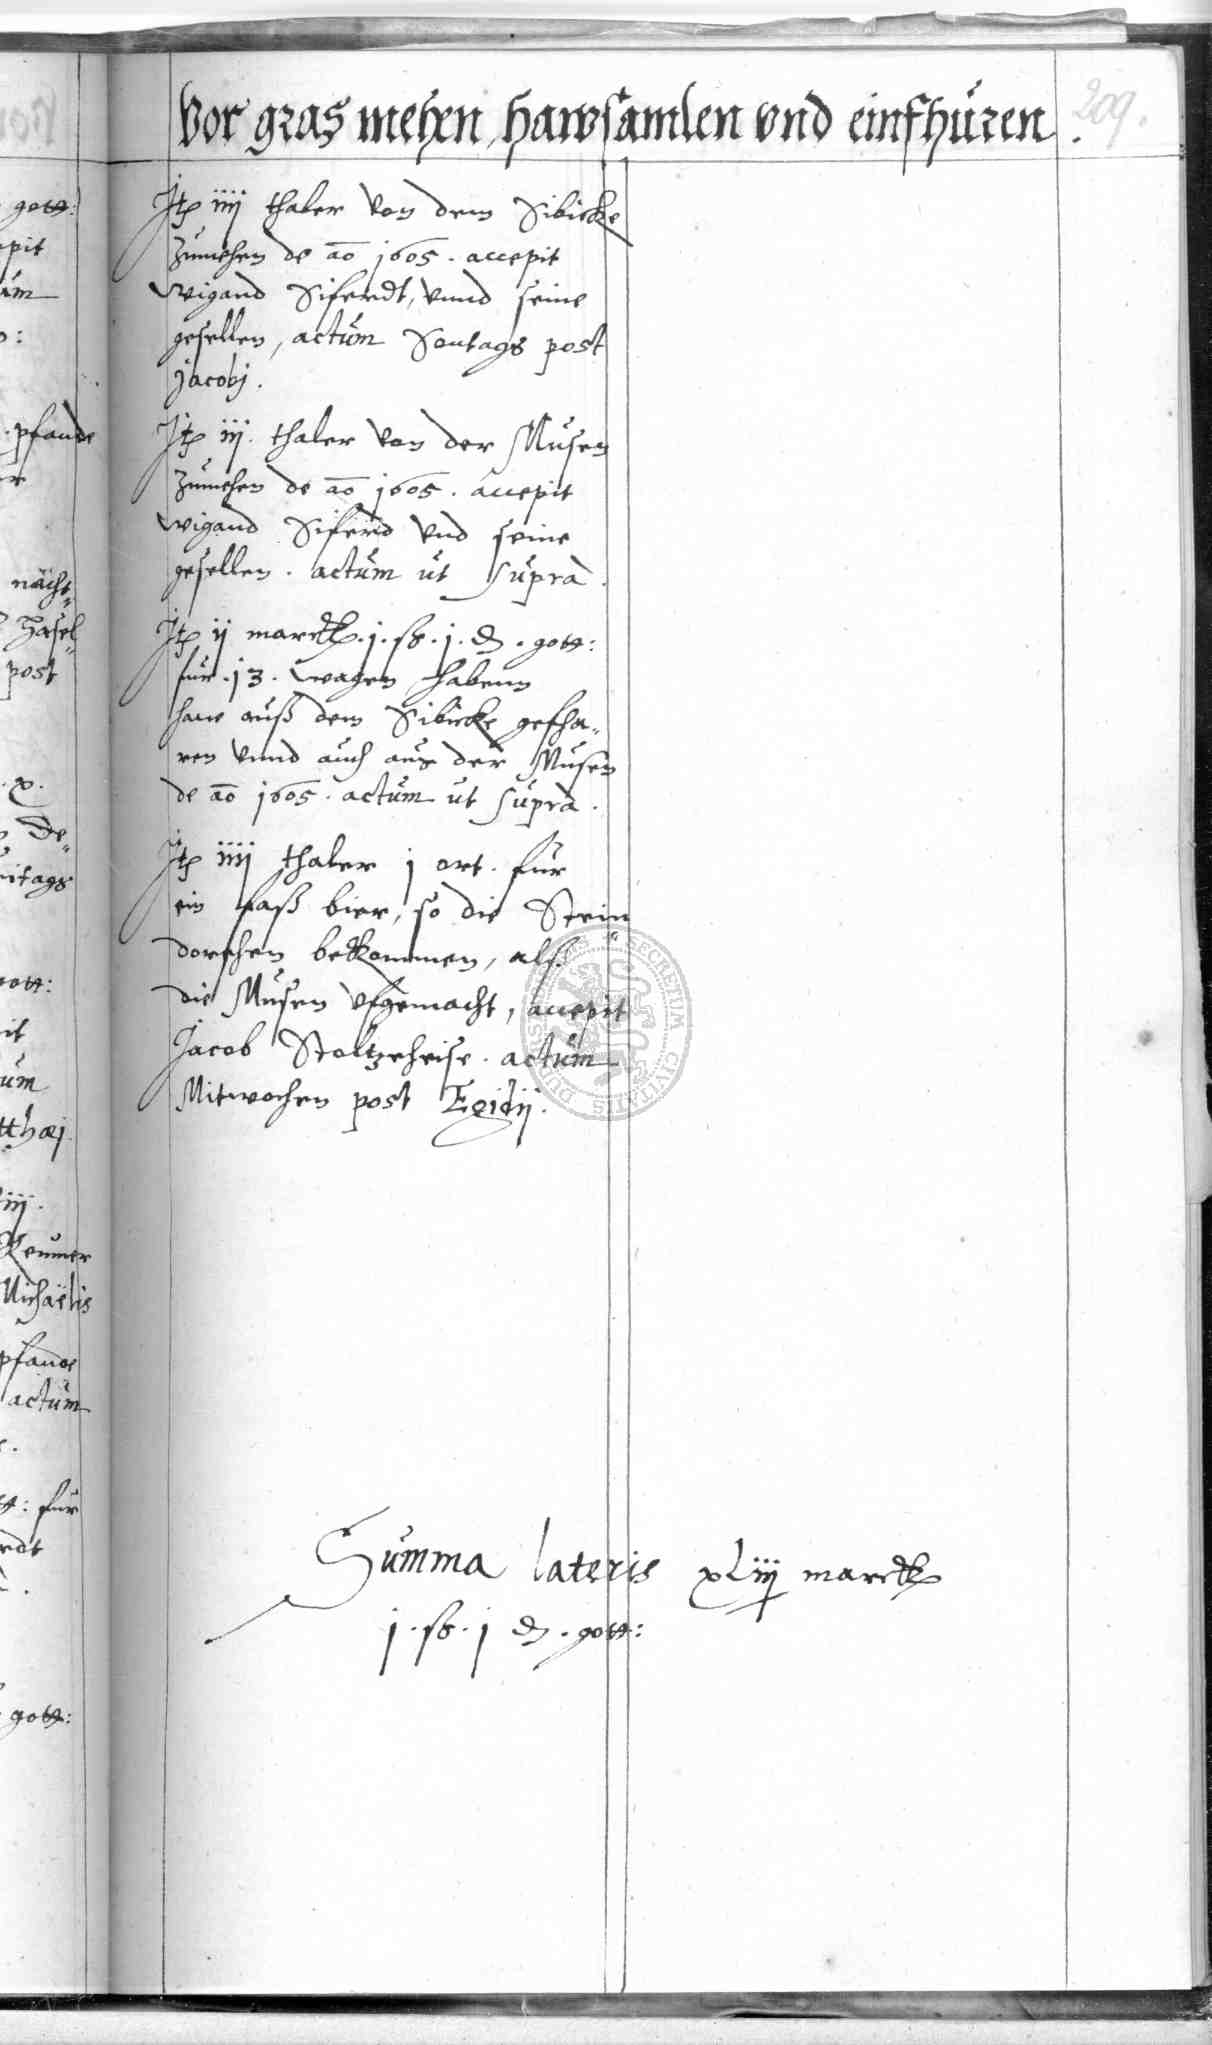 Vor gras mehen, hawsamlen vnd einfhüren.
209.
Itp iiij thaler von dem Sibicke
zumehen de ao 1605. accepit
Wigand Siferdt, vnnd seine
gesellen, actum Sontags post
Jacobj.
Itp iij. thaler von der Musen
zumehen de ao 1605. accepit
Wigand Siferd vnd seine
gesellen. actum ut supra.
Itp ij marck. j. ß. j. d. gott:
für 13. wagen habenn
haw auß dem Sibicke gefha„
ren vnnd auch aus der Musen
de ao 1605. actum ut supra.
Itp iiij thaler j ort. für
ein faß bier, so die Stein„
dorschen bekommen, alß
die Musen vfgemacht, accepit
Jacob Stoltzeheise. actum
Mitwochen post Egidij.
SECRETUM CIVITATIS
Summa lateris xLiij marck
j. ß. j d. gott:
gott:
pfande
nächt„
Hasel„
post
x.
De„
gott:
Michaëlis
pfande
actum
für
gott: